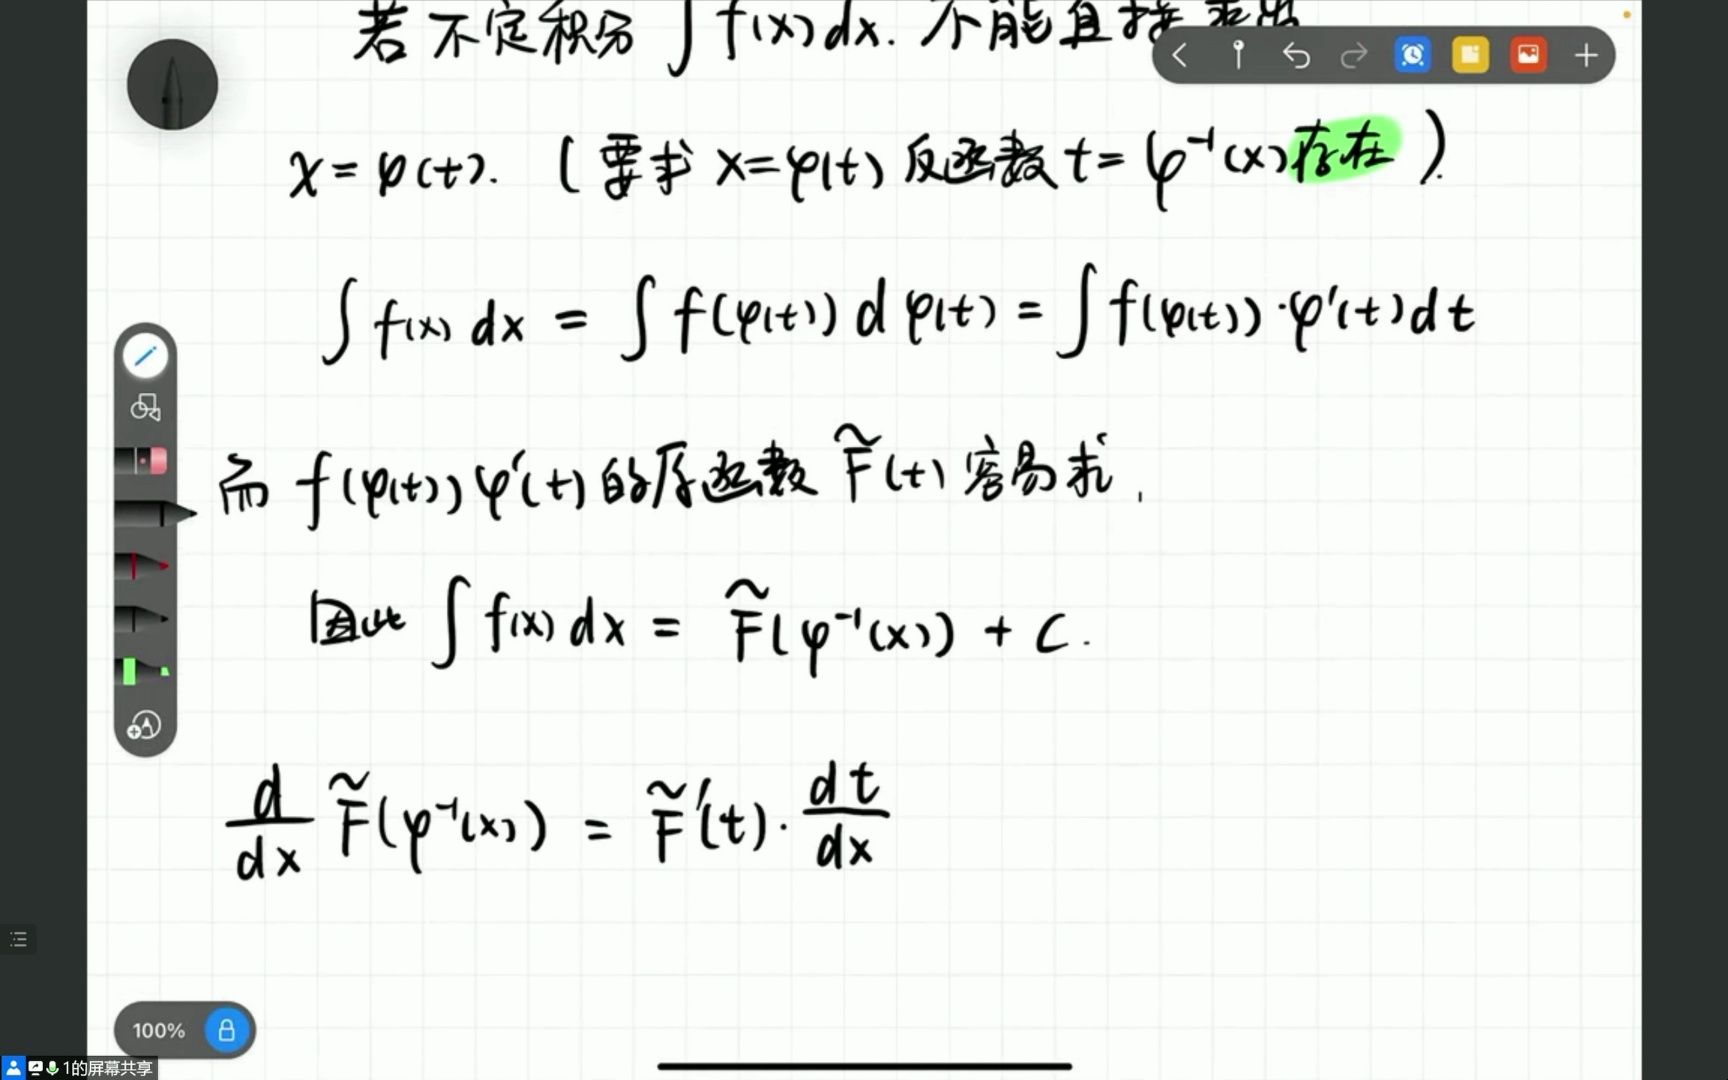 若不定积分 ∫ f(x) dx. 不能直接求出
x = φ(t). ( 要求 x=φ(t) 反函数 t = φ⁻¹(x) 存在 ).
∫ f(x) dx = ∫ f(φ(t)) d φ(t) = ∫ f(φ(t)) · φ'(t) dt
而 f(φ(t)) φ'(t) 的原函数 F̃(t) 容易求,
因此 ∫ f(x) dx = F̃(φ⁻¹(x)) + C.
d/dx F̃(φ⁻¹(x)) = F̃'(t) · dt/dx
100%
1的屏幕共享